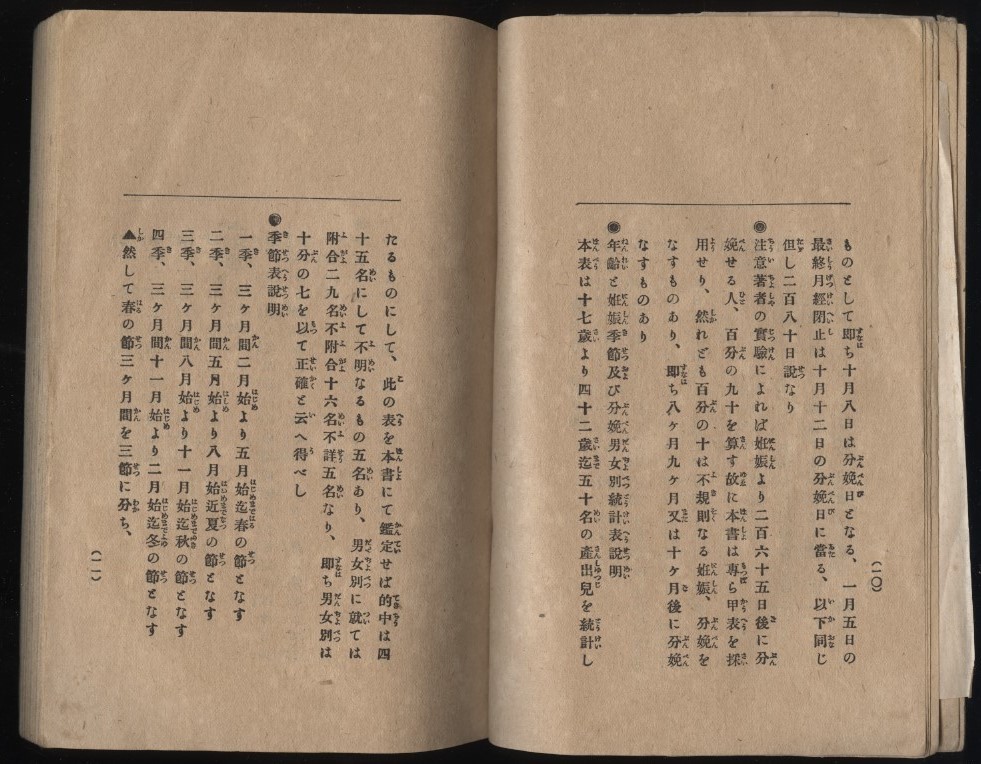 (一〇)
ものとして即ち十月八日は分娩日となる、一月五日の
最終月經閉止は十月十二日の分娩日に當る、以下同じ
但し二百八十日說なり
◉注意著者の實驗によれば姙娠より二百六十五日後に分
娩せる人、百分の九十を算す故に本書は專ら甲表を採
用せり、然れども百分の十は不規則なる姙娠、分娩を
なすものあり、即ち八ヶ月九ヶ月又は十ヶ月後に分娩
なすものあり
◉年齡と姙娠季節及び分娩男女別統計表說明
本表は十七歲より四十二歲迄五十名の產出兒を統計し
たるものにして、此の表を本書にて鑑定せば的中は四
十五名にして不明なるもの五名あり、男女別に就ては
附合二九名不附合十六名不詳五名なり、即ち男女別は
十分の七を以て正確と云へ得べし
◉季節表說明
一季、三ヶ月間二月始より五月始迄春の節となす
二季、三ヶ月間五月始より八月始近夏の節となす
三季、三ヶ月間八月始より十一月始迄秋の節となす
四季、三ヶ月間十一月始より二月始迄冬の節となす
▲然して春の節三ヶ月間を三節に分ち、
(一一)